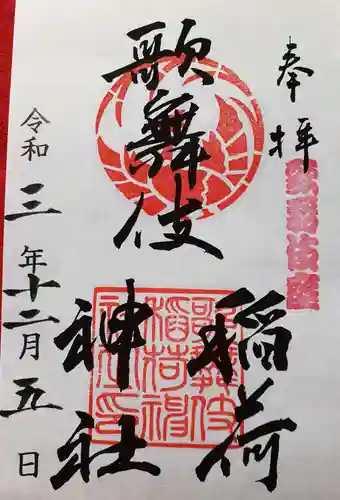 奉拝
歌舞伎座
歌舞伎
稲荷
神社
歌舞伎
稲荷神
社之印
令和三年十二月五日